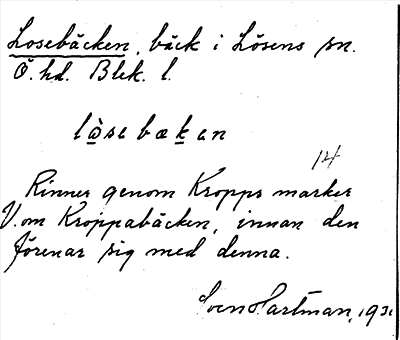 Losebäcken, bäck i Lösens sn.
Ö. hd. Blek. l.
lòsebækan
14
Rinner genom Kropps marker
V. om Kroppabäcken, innan den
förenar sig med denna.
Sven Hartman, 193